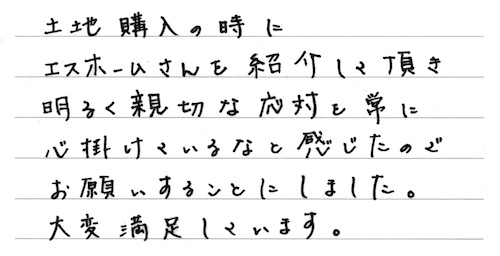 土地購入の時に
エスホームさんを紹介して頂き
明るく親切な応対を常に
心掛けているなと感じたので
お願いすることにしました。
大変満足しています。